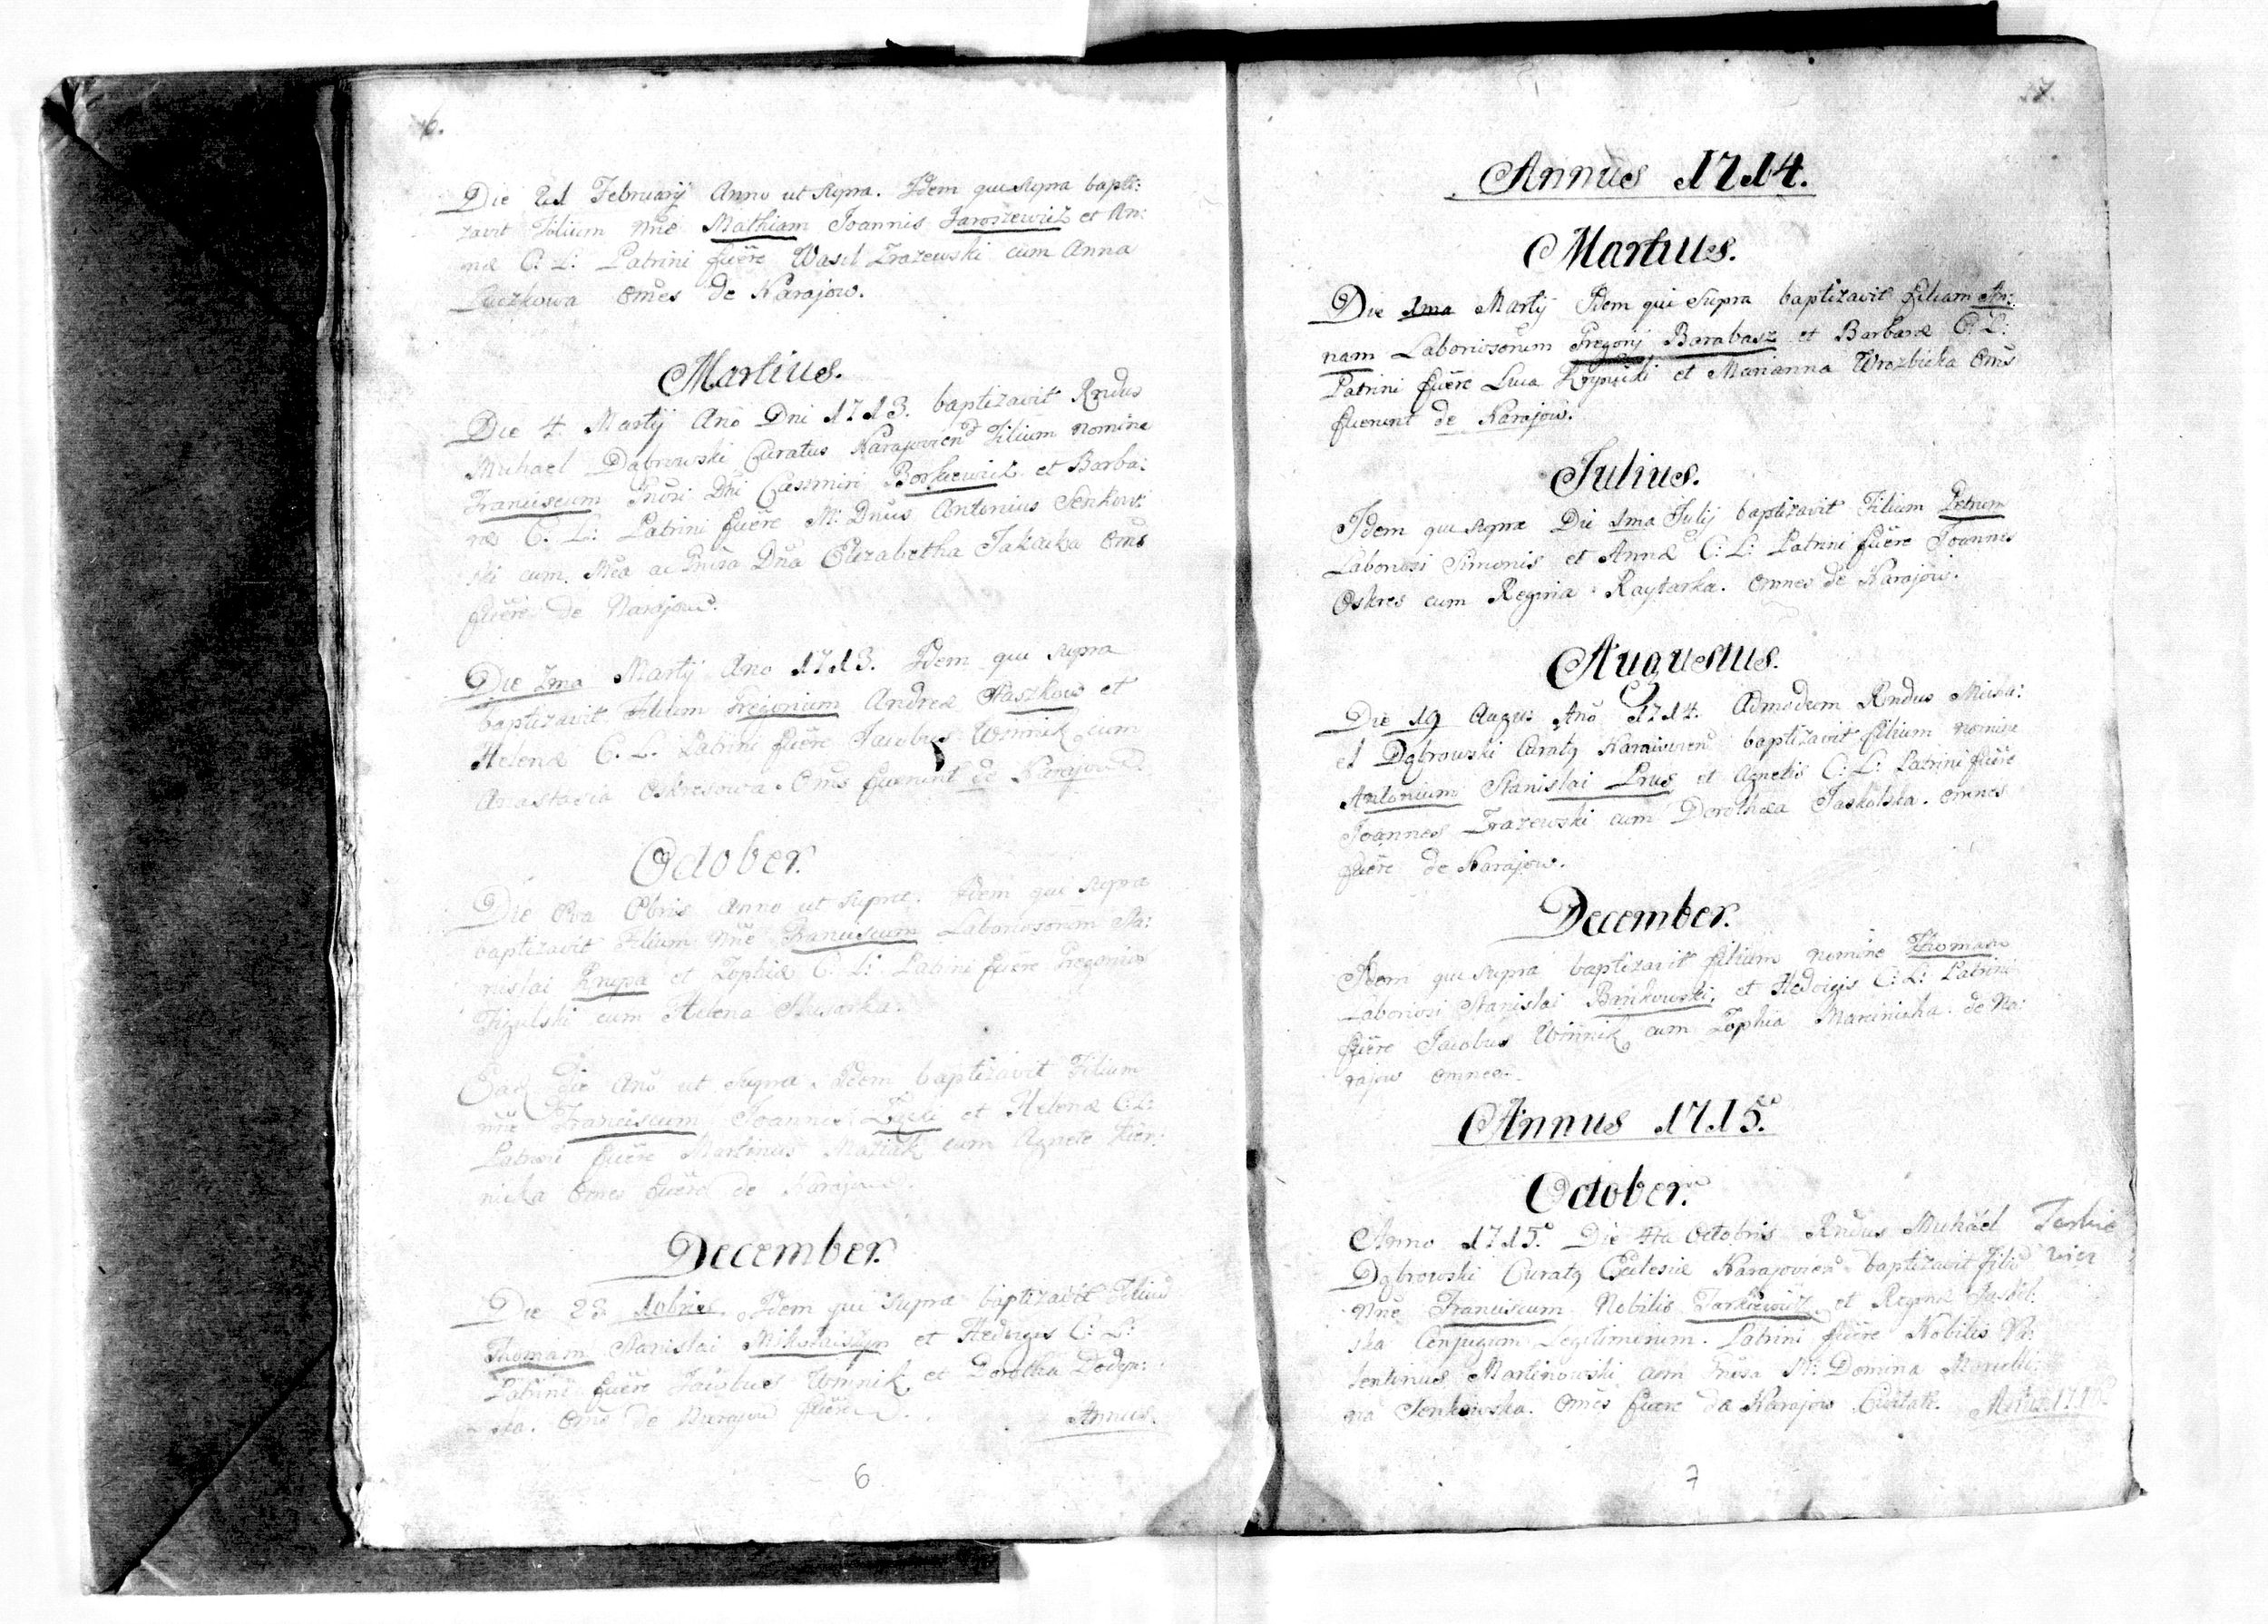 6.
Die 21 February Anno ut supra. Idem qui supra bapti:
zavit Filium nne Mathiam Joannis Jaroszewicz et An:
næ C: L: Patrini fuere Wasil Zrazewski cum Anna
omes de Narajow.
Martius.
Die 4 Martij Ano Dni 1713. baptizavit Rndus
Michael Dąbrowski Curatus Narajovien Filium nomine
Franciscum Dni Casimiri Borkiewicz et Barba:
ræ C. L: Patrini fuere M: Dnus Antonius Senkow:
ski cum Dna Elizabetha oms
fuere de Narajow.
Die Martij Ano 1713. Idem qui supra
baptizavit Filium Gregorium Andreæ Staszkow et
Helenæ C. L. Patrini fuere Jacobus Winnik cum
Anastasia Oskresowa. Oms fuerunt de Narajow.
October.
Die 8bris Anno ut supra. Idem qui supra
baptizavit Filium nne Franciscum Laboriosorum Sta:
nislai Krupa et Zophiæ C: L: Patrini fuere Gregorius
Figulski cum Helena
Ead die Ano ut supra. Idem baptizavit Filium
nne Franciscum Joannis et Helenæ C.L:
Patrini fuere Martinus cum Agnete
nicka omes fuere de Narajow.
December.
Die 23 10bris Idem qui supra baptizavit Filium
Thomam Stanislai et Hedvigis C: L:
Patrini fuere Jacobus Winnik et Dorothea
oms de Narajow fuere.
Annus.
6
7.
Annus 1714.
Martius.
Die 1ma Martij Idem qui supra baptizavit filiam An:
nam Laboriosorum Gregorij Barabasz et Barbaræ C: L:
Patrini fuere Luca et Marianna Wrozbicka oms
fuerunt de Narajow.
Julius.
Idem qui supra Die 1ma Julij baptizavit Filium Petrum
Laboriosi Simonis et Annæ C: L: Patrini fuere Joannes
Oskres cum Regina Raytarka. omnes de Narajow.
Augustus.
Die 19 Augus Ano 1714. Admodum Rndus Micha:
el Dąbrowski Curatq baptizavit filium nomine
Antonium Stanislai Prus et Agnetis C: L: Patrini fuere
Joannes Zrazewski cum Dorothea Jaskolska. omnes
fuere de Narajow.
December.
Idem qui supra baptizavit filium nomine Thomam
Laboriosi Stanislai Bankowski et Hedvigis C: L: Patrini
fuere Jacobus Winnik cum Zophia Marciniska. de Na:
rajow omnes.
Annus 1715.
October.
Anno 1715. Die 4ta Octobris Rndus Michael
Dąbrowski Curatq Ecclesiæ Narajovien baptizavit filiu
nne Franciscum Nobilis Tarkiewicz et Reginæ Jaskol:
ska Conjugum Legitimorum. Patrini fuere Nobilis Va:
lentinus Martinowski cum M: Domina
na Senkowska. omes fuere de Narajow Civitate.
7